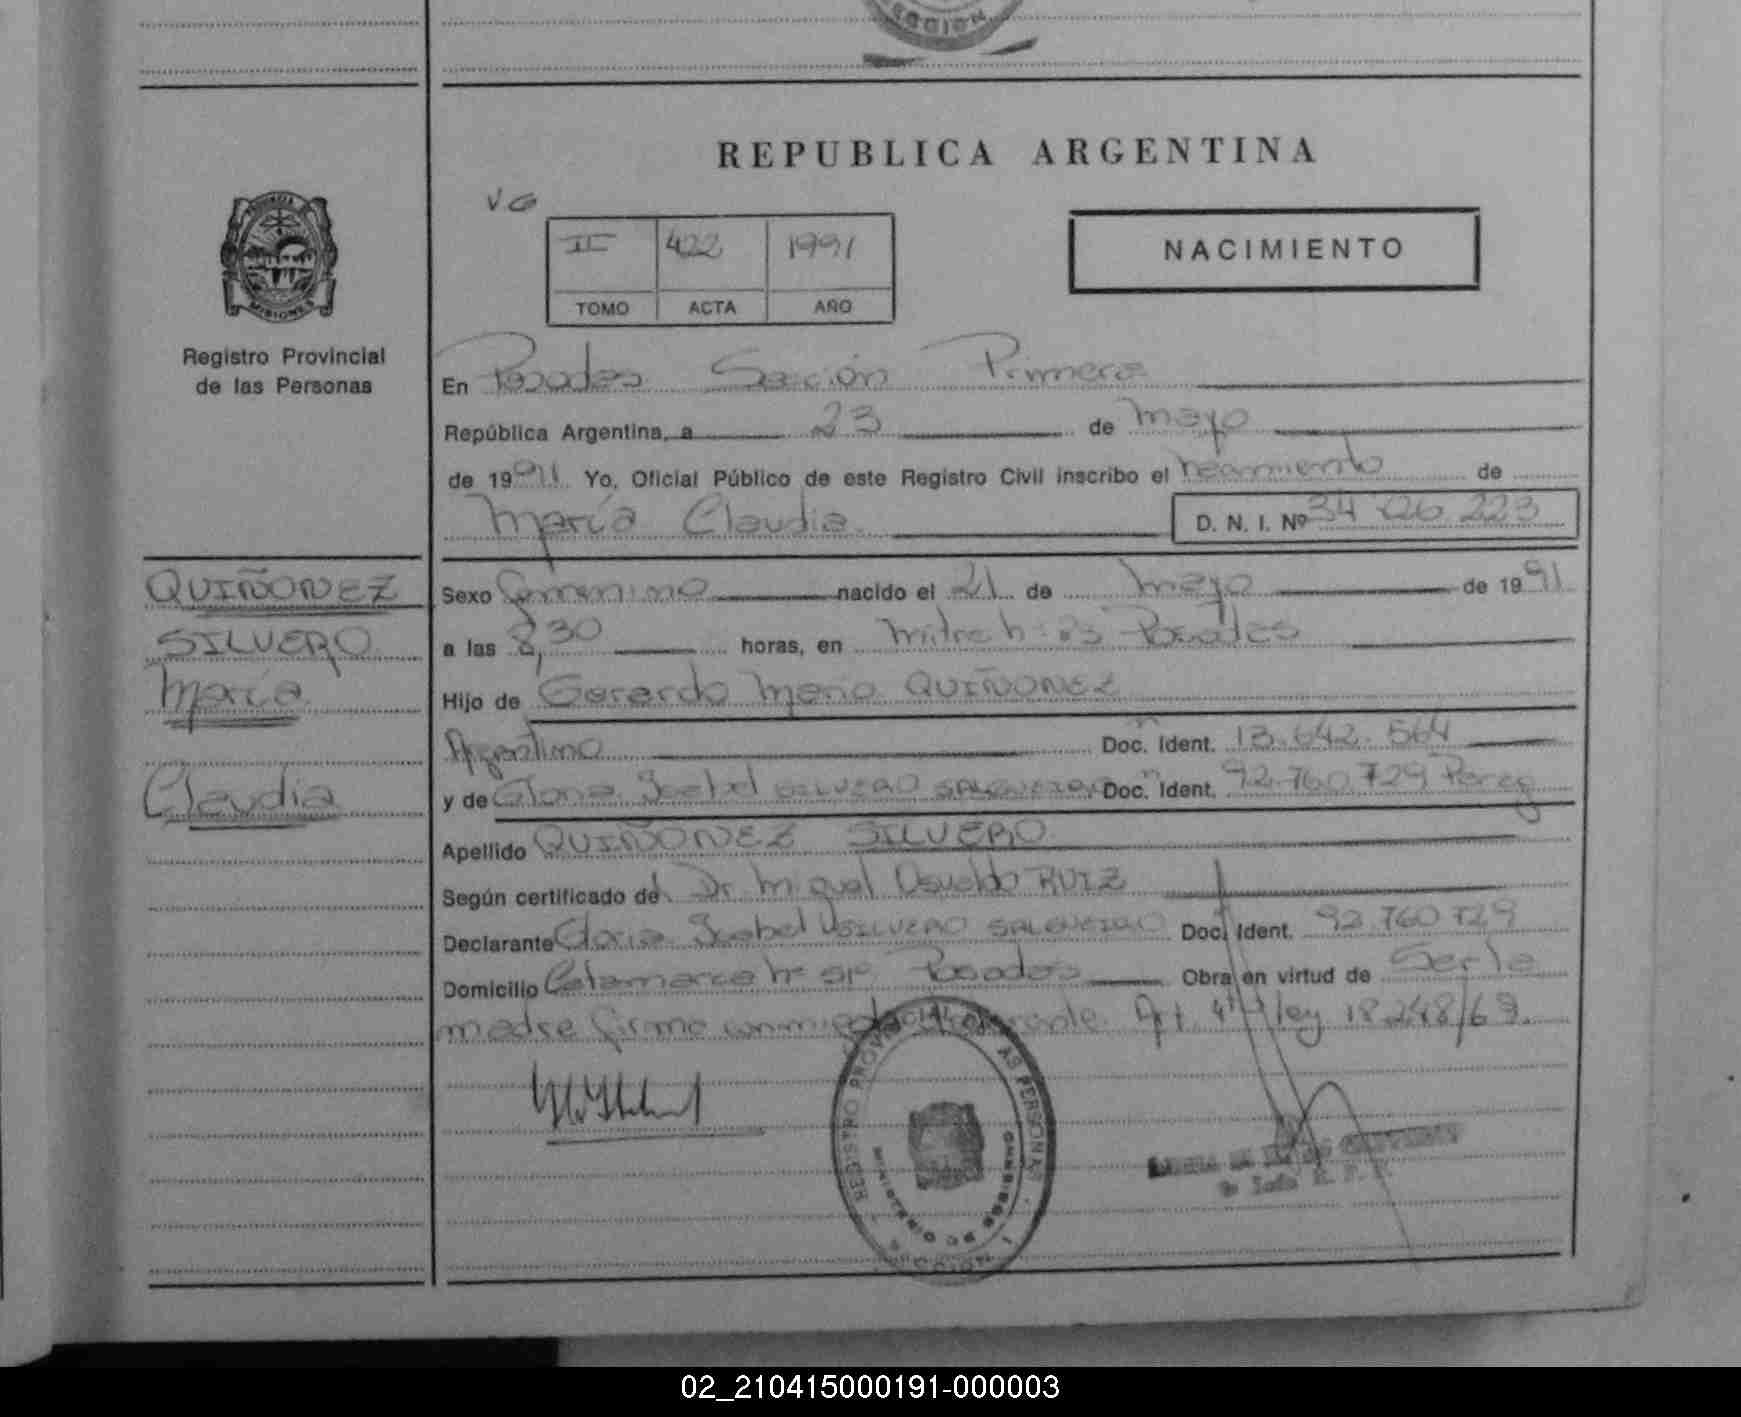 SECCION
REPUBLICA ARGENTINA
VG
II 422 1991
TOMO ACTA AÑO
NACIMIENTO
PROVINCIA
MISIONES
Registro Provincial
de las Personas
En Posadas Sección Primera
República Argentina, a 23 de mayo
de 1991 Yo, Oficial Público de este Registro Civil inscribo el nacimiento de
María Claudia D. N. I. Nº 34 726 223
QUIÑONEZ
SILVERO
María
Claudia
Sexo femenino nacido el 21 de mayo de 1991
a las 8,30 horas, en mitre nº Posadas
Hijo de Gerardo Mario QUIÑONEZ
Argentino Doc. Ident. 13.642.564
y de Gloria Isabel SILVERO SALGUEIRO Doc. Ident. 92.760.729 Parag
Apellido QUIÑONEZ SILVERO
Según certificado del Dr. Miguel Osvaldo RUIZ
Declarante Gloria Isabel SILVERO SALGUEIRO Doc. Ident. 92.760.729
Domicilio Catamarca nº Posadas Obra en virtud de Ser la
madre firma conmigo Art. 4º ley 18.248/69.
REGISTRO PROVINCIAL DE LAS PERSONAS
02_210415000191-000003